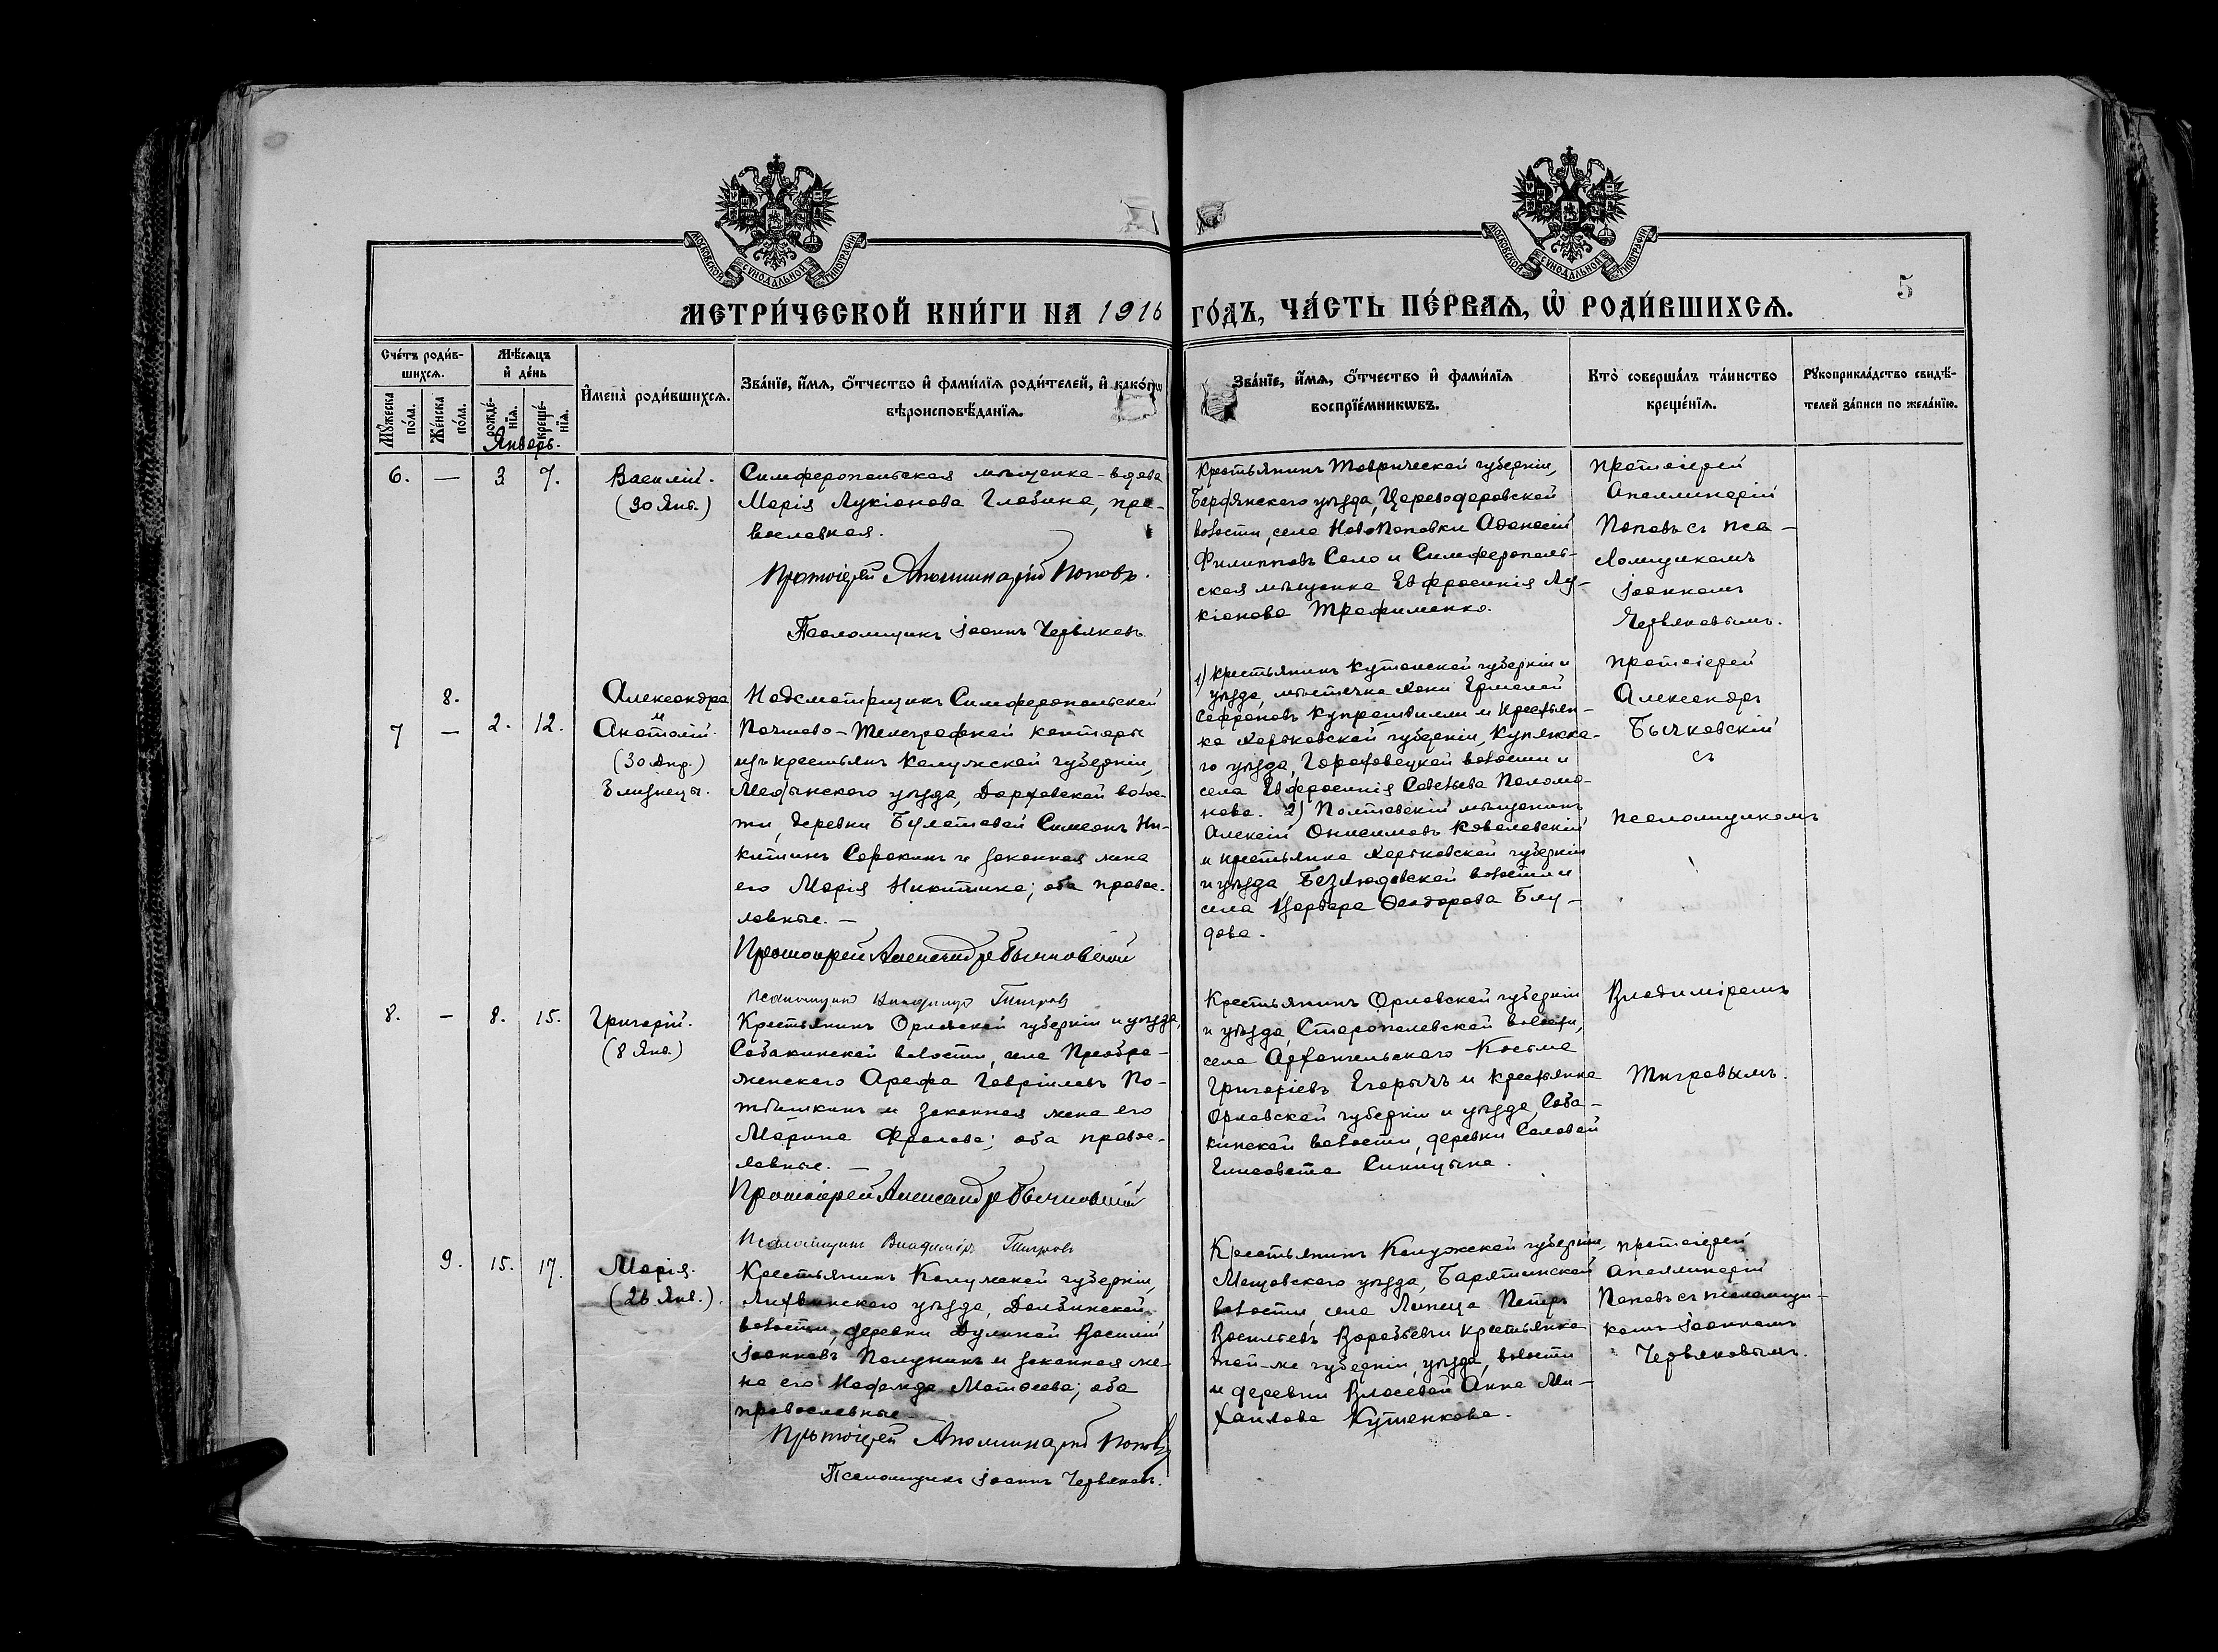 МОСКОВСКОЙ СѴНОДАЛЬНОЙ ТИПОГРАФІИ
МОСКОВСКОЙ СѴНОДАЛЬНОЙ ТИПОГРАФІИ
5
МЕТРИ́ЧЕСКОЙ КНИ́ГИ НА 1916 ГО́ДЪ, ЧА́СТЬ ПЕ́РВАѦ, Ѡ҆ РОДИ́ВШИХСѦ.
Сче́тъ роди́в-
шихсѧ.
Мѣ́сѧцъ
и҆ де́нь
Мꙋ́жеска по́ла.
Же́нска по́ла.
рожде́-
нїѧ.
креще́-
нїѧ.
И҆мена̀ роди́вшихсѧ.
Зва́нїе, и҆́мѧ, ѻ҆́тчество и҆ фами́лїѧ роди́телей, и҆ како́гѡ
вѣроисповѣ́данїѧ.
Зва́нїе, и҆́мѧ, ѻ҆́тчество и҆ фами́лїѧ
воспрїе́мникѡвъ.
Кто̀ соверша́лъ та́инство
креще́нїѧ.
Рꙋкоприкла́дство свидѣ́-
телей за́писи по жела́нїю.
Январь.
6. — 3 7.
Василій.
(30 Янв.)
Симферопольская мѣщанка-вдова
Марія Лукіанова Глобина, пра-
вославная.
Протоіерей Аполлинарій Поповъ.
Псаломщикъ Іоаннъ Червяковъ.
Крестьянинъ Таврической губерніи,
Бердянскаго уѣзда, Цареводаровской
волости, села Новопоповки Афанасій
Филипповъ Сало и Симферополь-
ская мѣщанка Евфросинія Лу-
кіанова Трофименко.
Протоіерей
Аполлинарій
Поповъ съ пса-
ломщикомъ
Іоанномъ
Червяковымъ.
8.
7 — 2. 12.
Александра
и
Анатолій.
(30 Апр.)
Близнецы.
Надсмотрщикъ Симферопольской
Почтово-Телеграфной конторы
изъ крестьянъ Калужской губерніи,
Медынскаго уѣзда, волос-
ти, деревни Булатовой Симеонъ Ни-
китинъ Сорокинъ и законная жена
его Марія Никитина; оба правос-
лавные. —
Протоіерей Александръ Бычковскій
Псаломщикъ Владиміръ Тигровъ
1) Крестьянинъ Кутаисской губерніи и
уѣзда, мѣстечка Хони Ермолай
Софроновъ и крестьян-
ка Харьковской губерніи, Купянска-
го уѣзда, волости и
села Евфросинія Савельева Полома-
нова. 2) Полтавскій мѣщанинъ
Алексій Онисимовъ Ковалевскій
и крестьянка Харьковской губерніи
и уѣзда, Безлюдовской волости и
села Варвара Ѳеодорова Блу-
дова.
Протоіерей
Александръ
Бычковскій
съ
псаломщикомъ
Владиміромъ
Тигровымъ.
8. — 8. 15.
Григорій.
(8 Янв.)
Крестьянинъ Орловской губерніи и уѣзда,
Собакинской волости, села Преобра-
женскаго Арефа Гавріиловъ По-
тѣшкинъ и законная жена его
Марина Фролова; оба правос-
лавные. —
Протоіерей Александръ Бычковскій
Псаломщикъ Владиміръ Тигровъ
Крестьянинъ Орловской губерніи
и уѣзда, волости,
села Архангельскаго Косьма
Григоріевъ Егорычъ и крестьянка
Орловской губерніи и уѣзда, Соба-
кинской волости, деревни Саловой
Елисавета Синицына.
9. 15. 17.
Марія.
(26 Янв.).
Крестьянинъ Калужской губерніи,
Лихвинскаго уѣзда, Долбинской
волости, деревни Василій
Іоанновъ Полунинъ и законная же-
на его Надежда Матѳеева; оба
православные
Протоіерей Аполлинарій Поповъ
Псаломщикъ Іоаннъ Червяковъ.
Крестьянинъ Калужской губерніи,
Мещовскаго уѣзда, Барятинской
волости села Петръ
Васильевъ Воробьевъ и крестьянка
той-же губерніи, уѣзда, волости
и деревни Власовой Анна Ми-
хаилова Кутенкова.
Протоіерей
Аполлинарій
Поповъ съ псаломщи-
комъ Іоанномъ
Червяковымъ.